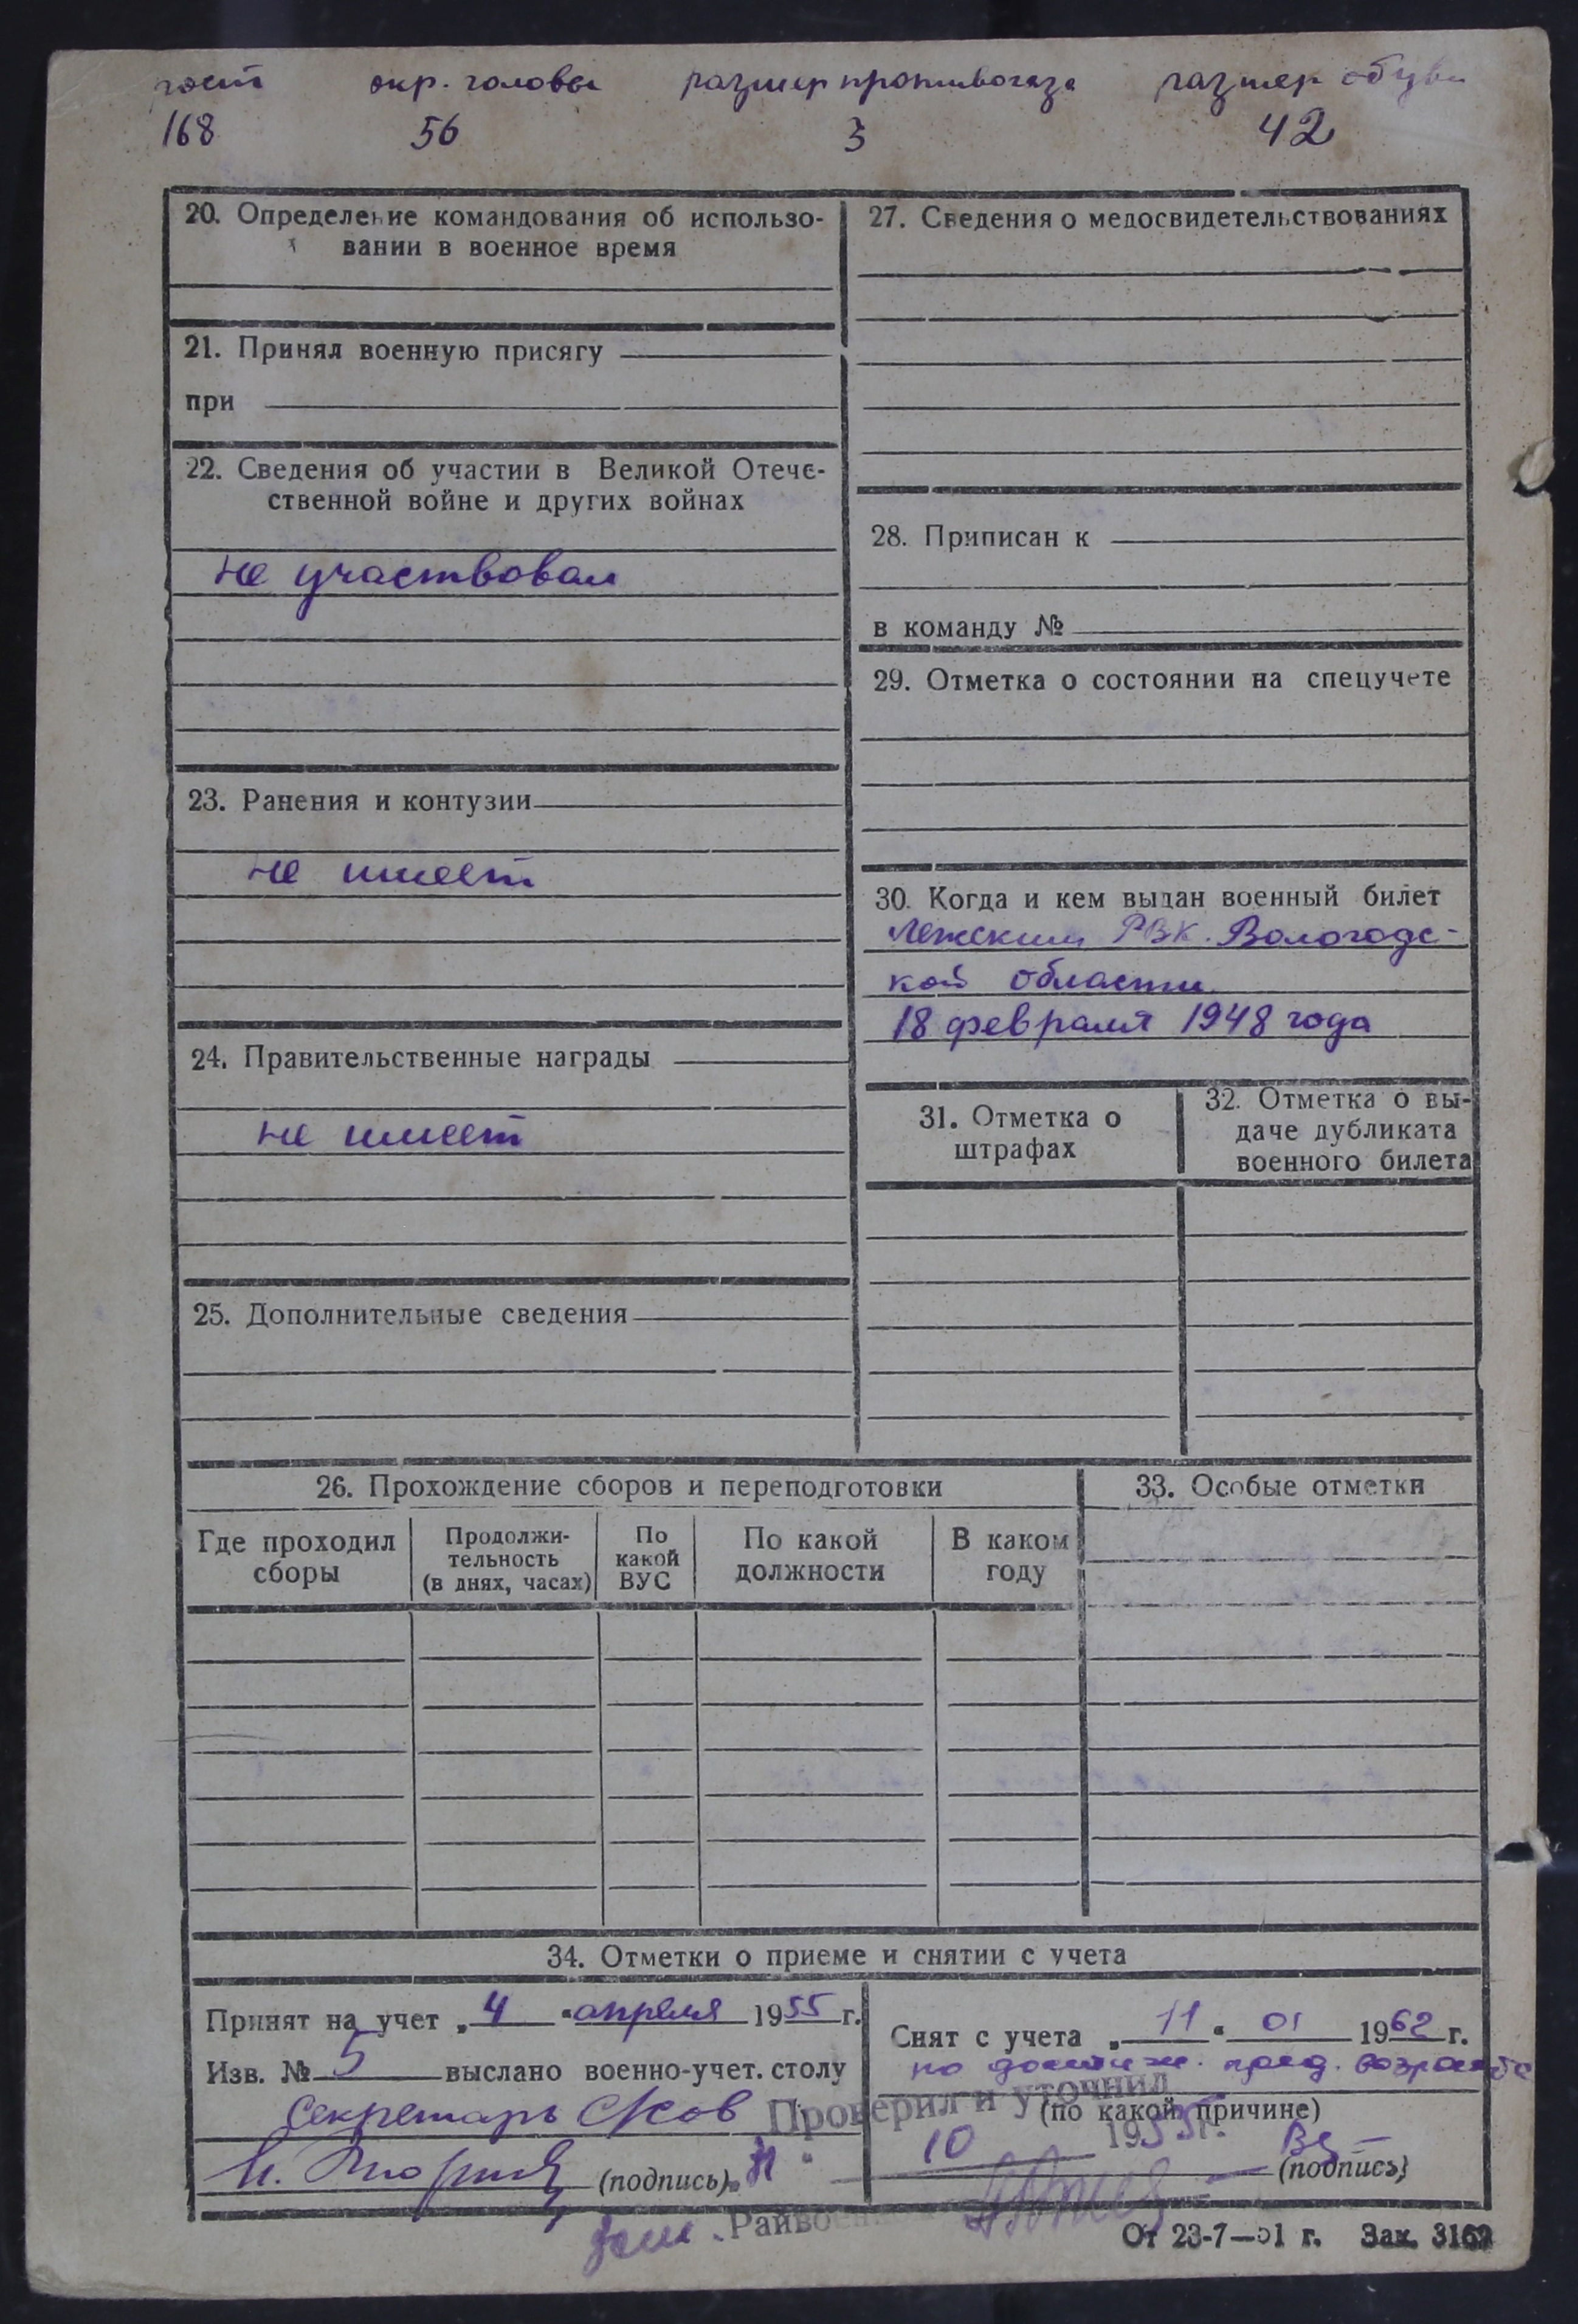 рост окр. головы размер противогаза размер обуви
168 56 3 42
20. Определение командования об использо-
вании в военное время
21. Принял военную присягу
при
22. Сведения об участии в Великой Отече-
ственной войне и других войнах
не участвовал
23. Ранения и контузии
не имеет
24. Правительственные награды
не имеет
25. Дополнительные сведения
27. Сведения о медосвидетельствованиях
28. Приписан к
в команду №
29. Отметка о состоянии на спецучете
30. Когда и кем выдан военный билет
Лежским РВК. Вологодс-
кой области
18 февраля 1948 года
31. Отметка о
штрафах
32. Отметка о вы-
даче дубликата
военного билета
26. Прохождение сборов и переподготовки
Где проходил
сборы
Продолжи-
тельность
(в днях, часах)
По
какой
ВУС
По какой
должности
В каком
году
33. Особые отметки
34. Отметки о приеме и снятии с учета
Принят на учет „4“ апреля 1955 г.
Изв. № 5 выслано военно-учет. столу
Секретарь
(подпись)
Снят с учета „11“ 01 1962 г.
по достиж. пред. возраста
(по какой причине)
(подпись)
Проверил и уточнил
10 1955 г.
Зам. Райво
От 23-7—51 г. Зак. 3162